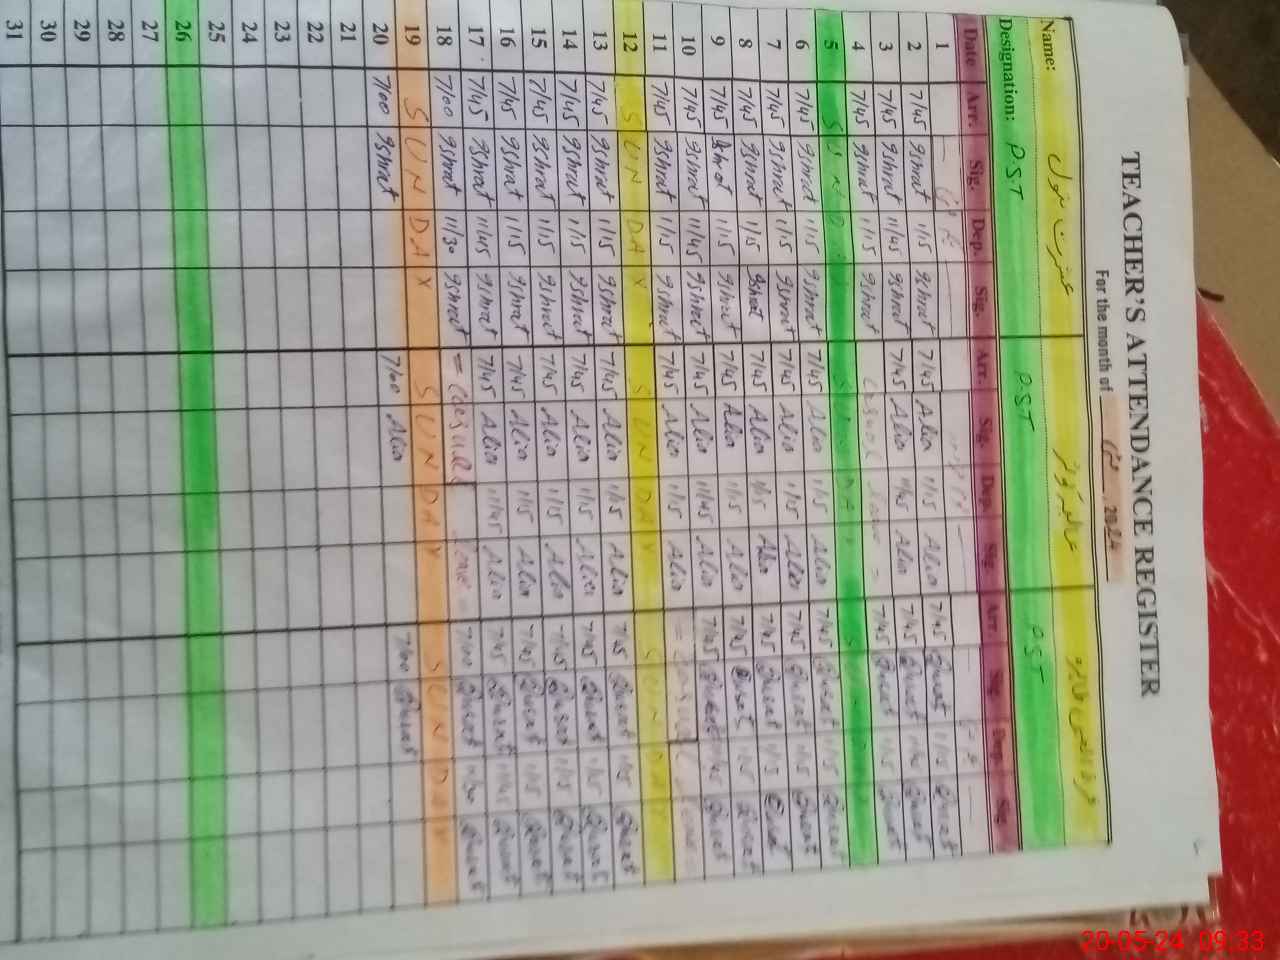 TEACHER'S ATTENDANCE REGISTER
For the month of مئی 2024
Name: عشرت بتول
Designation: P.S.T P.S.T P.S.T
Date Arr. Sig. Dep. Sig. Arr. Sig. Dep. Sig. Arr. Sig. Dep. Sig.
1
2 7/45 Ishrat 1/15 Ishrat 7/45 Alia 1/15 Alia 7/45 Qurat 1/15 Qurat
3 7/45 Ishrat 11/45 Ishrat 7/45 Alia 11/45 Alia 7/45 Qurat 11/45 Qurat
4 7/45 Ishrat 1/15 Ishrat Casual Leave = 7/45 Qurat 1/15 Qurat
5 SUNDAY SUNDAY SUNDAY
6 7/45 Ishrat 1/15 Ishrat 7/45 Alia 1/15 Alia 7/45 Qurat 1/15 Qurat
7 7/45 Ishrat 1/15 Ishrat 7/45 Alia 1/15 Alia 7/45 Qurat 1/15 Qurat
8 7/45 Ishrat 1/15 Ishrat 7/45 Alia 1/15 Alia 7/45 Qurat 1/15 Qurat
9 7/45 Ishrat 1/15 Ishrat 7/45 Alia 1/15 Alia 7/45 Qurat 1/15 Qurat
10 7/45 Ishrat 11/45 Ishrat 7/45 Alia 11/45 Alia 7/45 Qurat 11/45 Qurat
11 7/45 Ishrat 1/15 Ishrat 7/45 Alia 1/15 Alia = Casual Leave =
12 SUNDAY SUNDAY SUNDAY
13 7/45 Ishrat 1/15 Ishrat 7/45 Alia 1/15 Alia 7/45 Qurat 1/15 Qurat
14 7/45 Ishrat 1/15 Ishrat 7/45 Alia 1/15 Alia 7/45 Qurat 1/15 Qurat
15 7/45 Ishrat 1/15 Ishrat 7/45 Alia 1/15 Alia 7/45 Qurat 1/15 Qurat
16 7/45 Ishrat 1/15 Ishrat 7/45 Alia 1/15 Alia 7/45 Qurat 1/15 Qurat
17 7/45 Ishrat 11/45 Ishrat 7/45 Alia 11/45 Alia 7/45 Qurat 11/45 Qurat
18 7/00 Ishrat 11/30 Ishrat = Casual Leave = 7/00 Qurat 11/30 Qurat
19 SUNDAY SUNDAY SUNDAY
20 7/00 Ishrat 7/00 Alia 7/00 Qurat
21
22
23
24
25
26
27
28
29
30
31
20-05-24 09:33